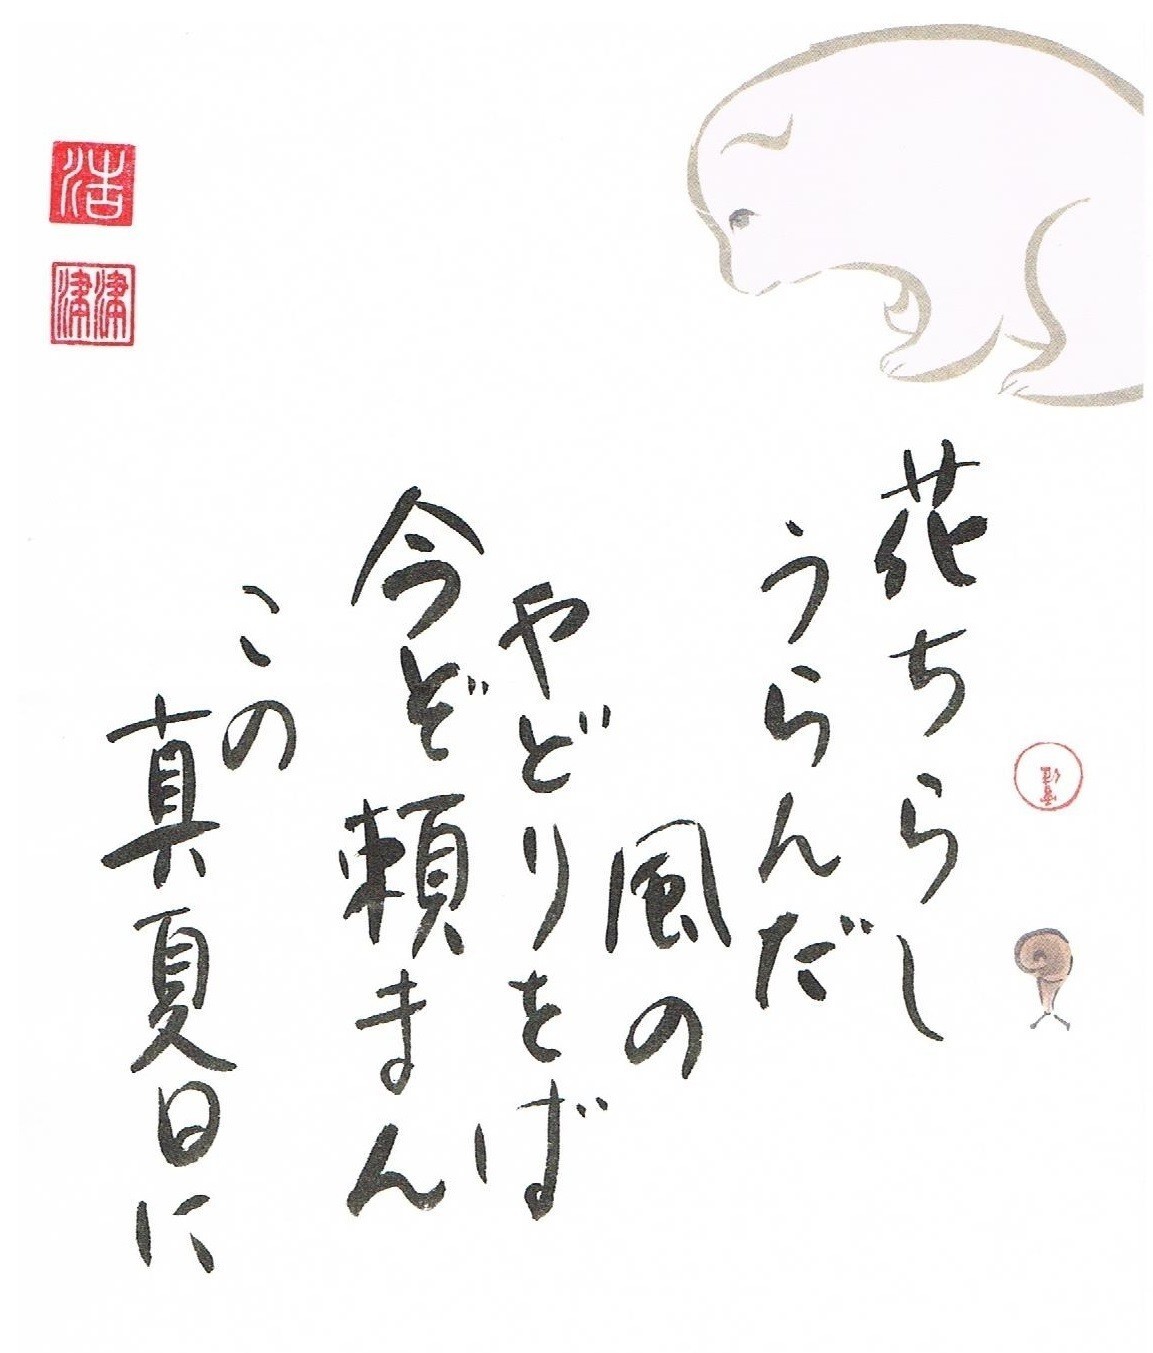 花ちらし
うらんだ
風の
やどりをば
今ぞ頼まん
この
真夏日に
浩
津津